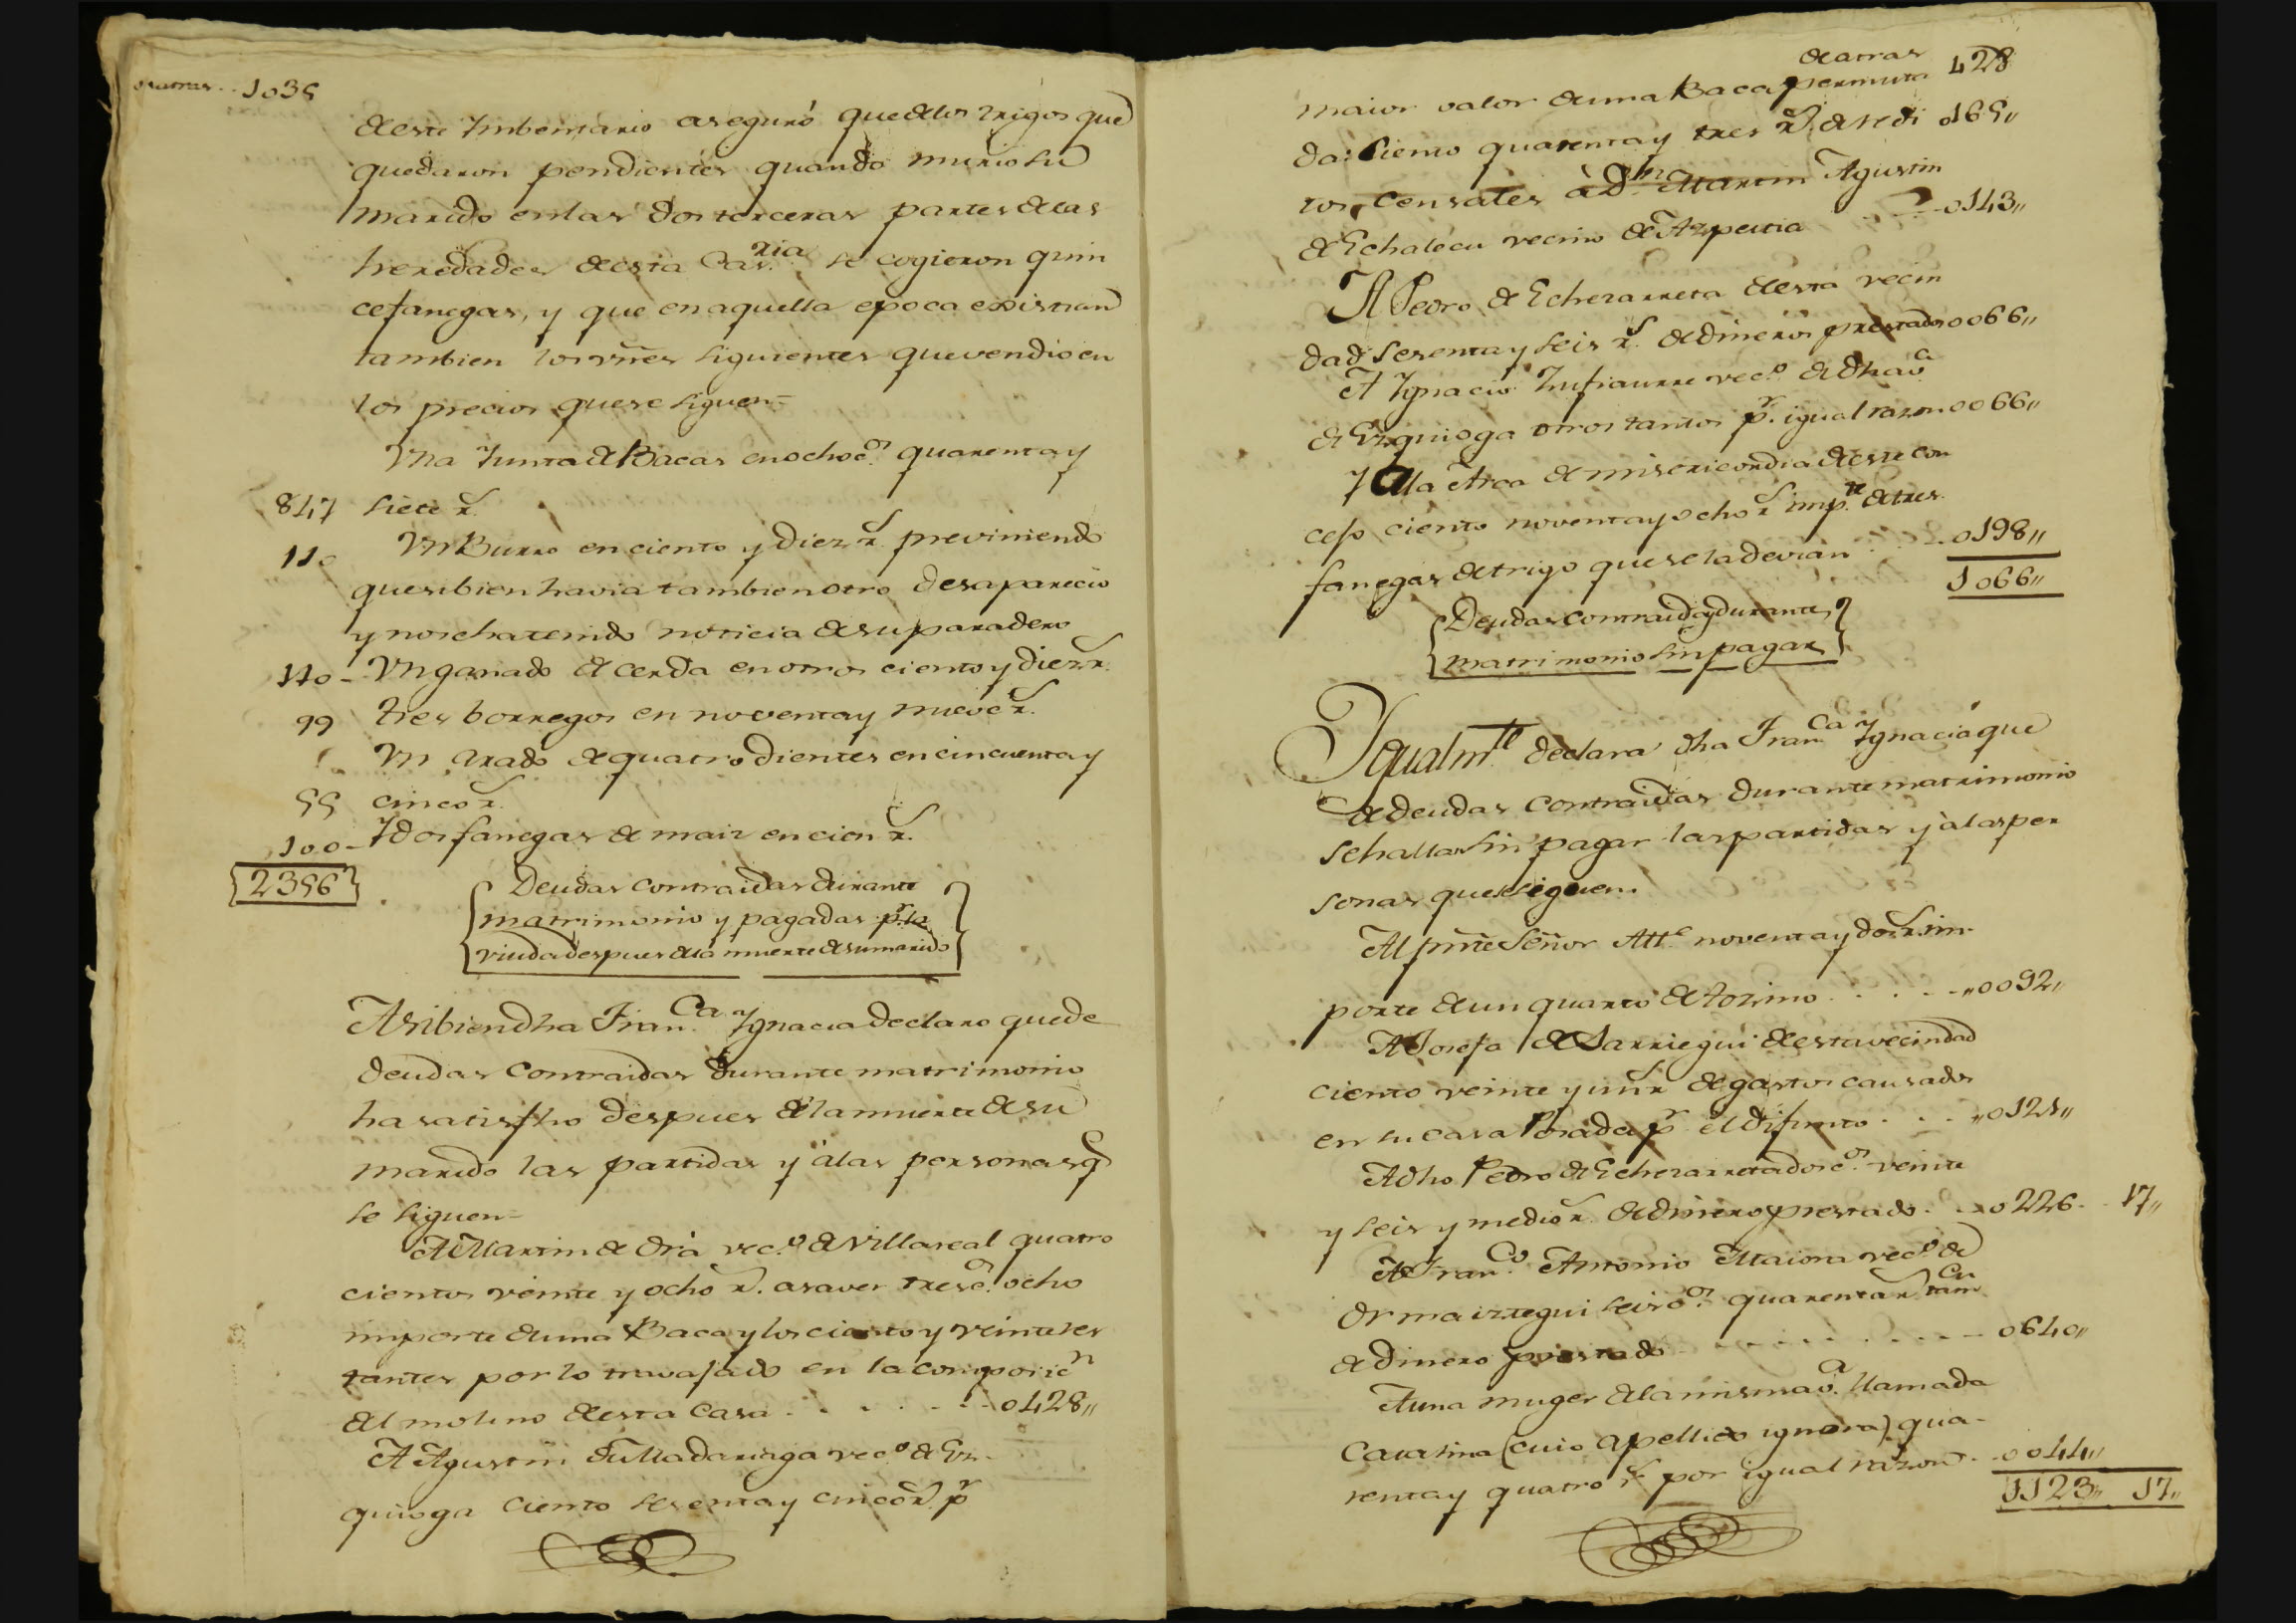 de atras . . 1035
deeste Imbentario aseguró que de los trigos que
quedaron pendientes quando murio su
marido en las dos terceras partes de las
heredades de esta Cas.ria se cogieron quin
ce fanegas, y que en aquella epoca existian
tambien los vnes siguientes que vendio en
los precios que se siguen=
Una Junta de Bacas en ochoc.os quarenta y
847 siete r.s
110 Un Burro en ciento y diez r.s previniendo
que si bien havia tambien otro desaparecio
y no se ha tenido noticia de su paradero
110 - Un ganado de cerda en otros ciento y diez r.s
99 tres borregos en noventa y nueve r.s
Un arado de quatro dientes en cincuenta y
55 cinco r.s
100 - Y dos fanegas de maiz en cien r.s
2356
Deudas contraidas durante
matrimonio y pagadas p.r la
viuda despues de la muerte de su marido
Asibien dha Fran.ca Ignacia declaro que de
deudas contraidas durante matrimonio
ha satisfho despues de la muerte de su
marido las partidas y à las personas q.e
se siguen=
A Martin de Oria vec.o de Villareal quatro
cientos veinte y ocho r.s asaver tresc.s ocho
importe de una Baca y los ciento y veinte res
tantes por lo travajado en la composic.n
del molino de esta Casa . . . . . . 0428,,
A Agustin de Madariaga vec.o de Ez-
quioga ciento sesenta y cinco r.s p.r
de atras 428
maior valor de una Baca permuta
da: Ciento quarenta y tres r.s de redi 0165,,
tos, Censales à D.n Martin Agustin
de Echalecu vecino de Azpeitia . . . 0143,,
A Pedro de Echezarreta de esta vecin
dad sesenta y seis r.s de dineros prestados 0066,,
A Ignacio Insaurre vec.o de dha v.a
de Ezquioga otros tantos p.r igual razon 0066,,
Y a la Arca de misericordia de este con
cejo ciento noventa y ocho r.s imp.te de tres
fanegas de trigo que se la devian . . . 0198,,
1066,,
Deudas contraidas durante
matrimonio sin pagar
Igualm.te declara dha Fran.ca Ignacia que
de deudas contraidas durante matrimonio
se hallan sin pagar las partidas y à las per
sonas que se siguen.
Al pnte Señor Att.e noventa y dos r.s im-
porte de un quarto de tozino . . . . . 0092,,
A Josefa de Sarriegui de esta vecindad
ciento veinte y un r.s de gastos causados
en su casa Posada p.r el difunto . . . 0121,,
A dho Pedro de Echezarreta dosc.os veinte
y seis y medio r.s de dinero prestado . . 0226 . . 17,,
A Fran.co Antonio Maiora vec.o de
Ormaiztegui seisc.os quarenta r.s tam.en
de dinero prestado . . . . . . . . . 0640,,
A una muger de la misma v.a llamada
Catalina (cuio apellido ignora) qua-
renta y quatro r.s por igual razon . . 0044,,
1123,, 17,,